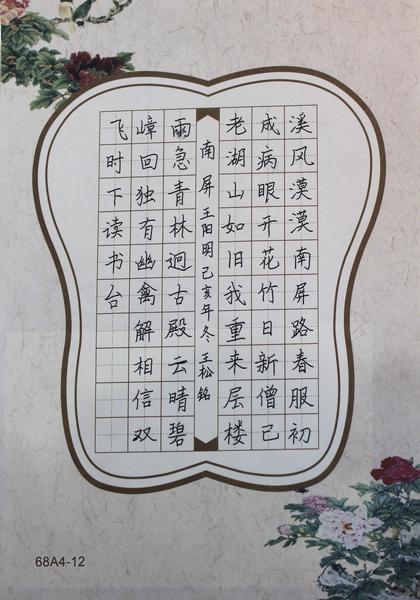 溪风漠漠南屏路春服初
成病眼开花竹日新僧已
老湖山如旧我重来层楼
南屏 王阳明 己亥年冬 王松铭
雨急青林迥古殿云晴碧
嶂回独有幽禽解相信双
飞时下读书台
68A4-12